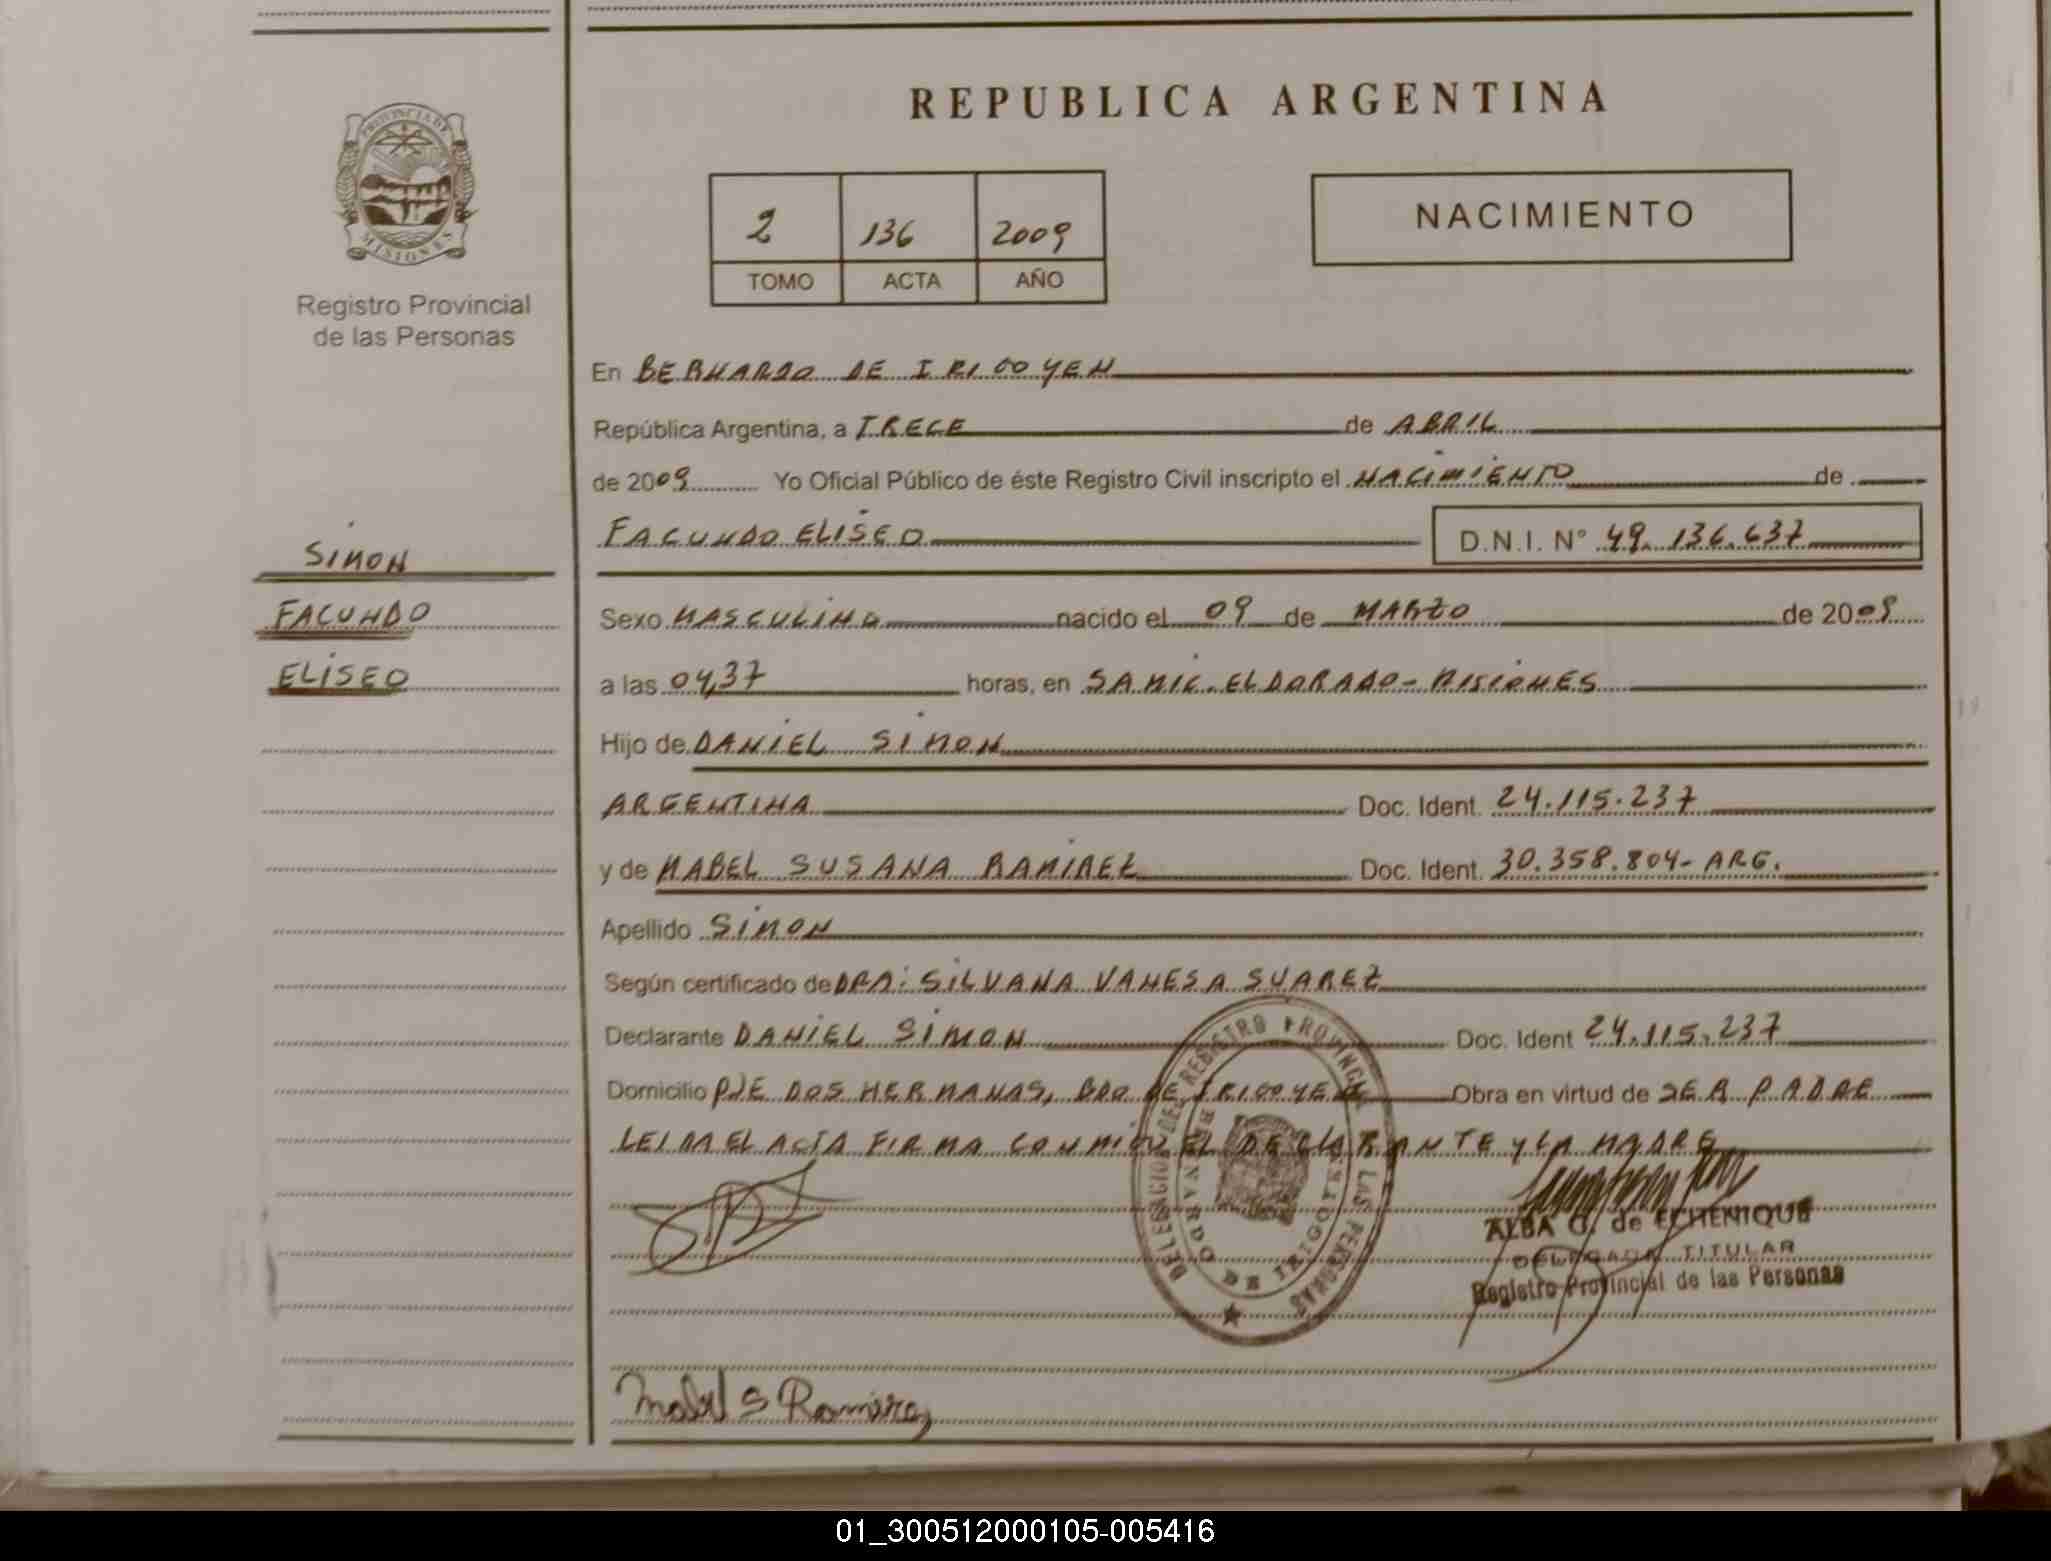 PROVINCIA DE
MISIONES
Registro Provincial
de las Personas
SIMON
FACUNDO
ELISEO
REPUBLICA ARGENTINA
2 136 2009
TOMO ACTA AÑO
NACIMIENTO
En BERNARDO DE IRIGOYEN
República Argentina, a TRECE de ABRIL
de 2009 Yo Oficial Público de éste Registro Civil inscripto el NACIMIENTO de
FACUNDO ELISEO D.N.I. N° 49.136.637
Sexo MASCULINO nacido el 09 de MARZO de 2009
a las 04,37 horas, en SAMIC. ELDORADO - MISIONES
Hijo de DANIEL SIMON
ARGENTINA Doc. Ident. 24.115.237
y de MABEL SUSANA RAMIREZ Doc. Ident. 30.358.804- ARG.
Apellido SIMON
Según certificado de DRA: SILVANA VANESA SUAREZ
Declarante DANIEL SIMON Doc. Ident 24.115.237
Domicilio PJE DOS HERMANAS, BDO DE IRIGOYEN Obra en virtud de SER PADRE
LEIDA EL ACTA FIRMA CONMIGO EL DECLARANTE Y LA MADRE
DELEGACION DEL REGISTRO PROVINCIAL DE LAS PERSONAS
BERNARDO DE IRIGOYEN
ALBA G. de ECHENIQUE
DELEGADA TITULAR
Registro Provincial de las Personas
Mabel S Ramirez
01_300512000105-005416